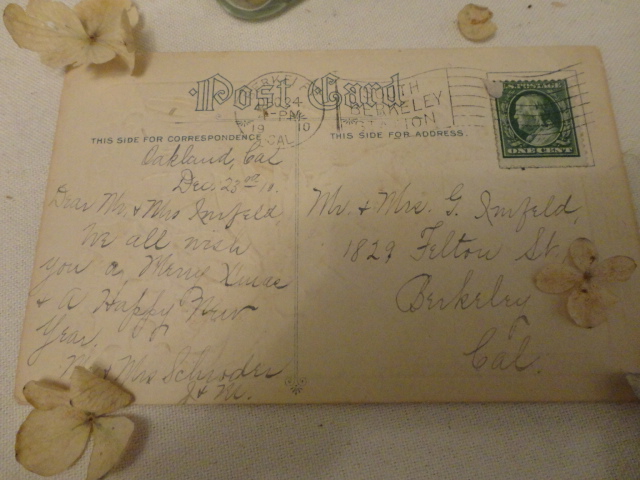 Post Card
BERKELEY
24
PM
1910
CAL
U.S. POSTAGE
ONE CENT
THIS SIDE FOR CORRESPONDENCE
THIS SIDE FOR ADDRESS.
Oakland, Cal
Dec, 23rd 10.
Dear Mr. & Mrs Imfeld,
We all wish
you a Merry Xmas
& A Happy New
Year.
Mr & Mrs Schroder
J & M.
Mr. & Mrs. G. Imfeld,
1829 Felton St.
Berkeley
Cal.